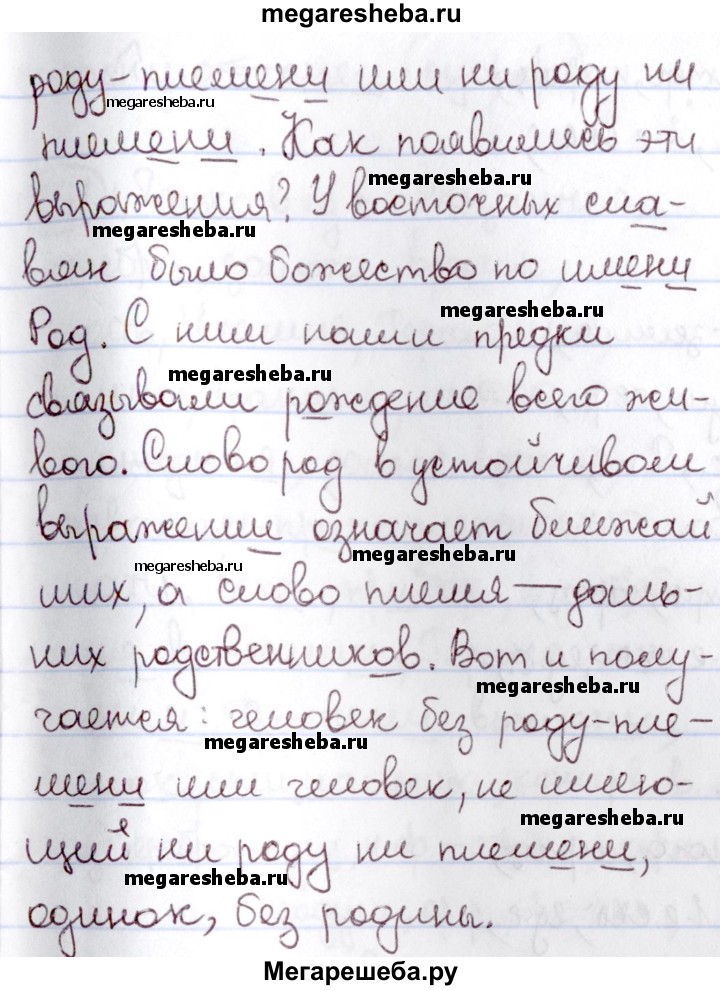 megaresheba.ru
роду-племени или ни роду ни
megaresheba.ru
племени. Как появились эти
megaresheba.ru
выражения? У восточных сла-
megaresheba.ru
вян было божество по имени
megaresheba.ru
Род. С ним наши предки
megaresheba.ru
связывали рождение всего жи-
вого. Слово род в устойчивом
выражении означает ближай
megaresheba.ru
megaresheba.ru
ших, а слово племя — даль-
них родственников. Вот и полу-
megaresheba.ru
чается: человек без роду-пле-
megaresheba.ru
мени или человек, не имею-
megaresheba.ru
щий ни роду ни племени,
megaresheba.ru
одинок, без родины.
Мегарешеба.ру